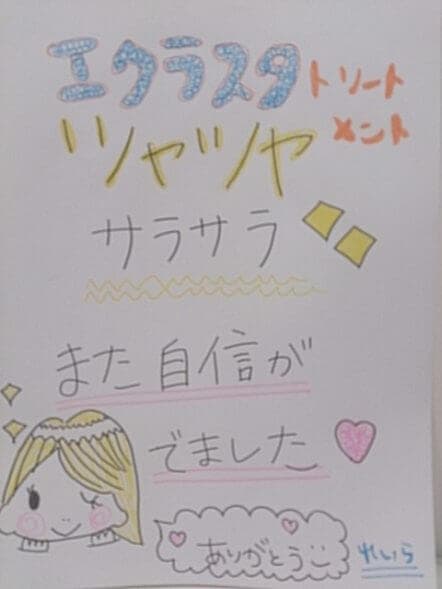 エクラスタ
トリート
メント
ツヤツヤ
サラサラ
また自信が
でました
ありがとう
れいら